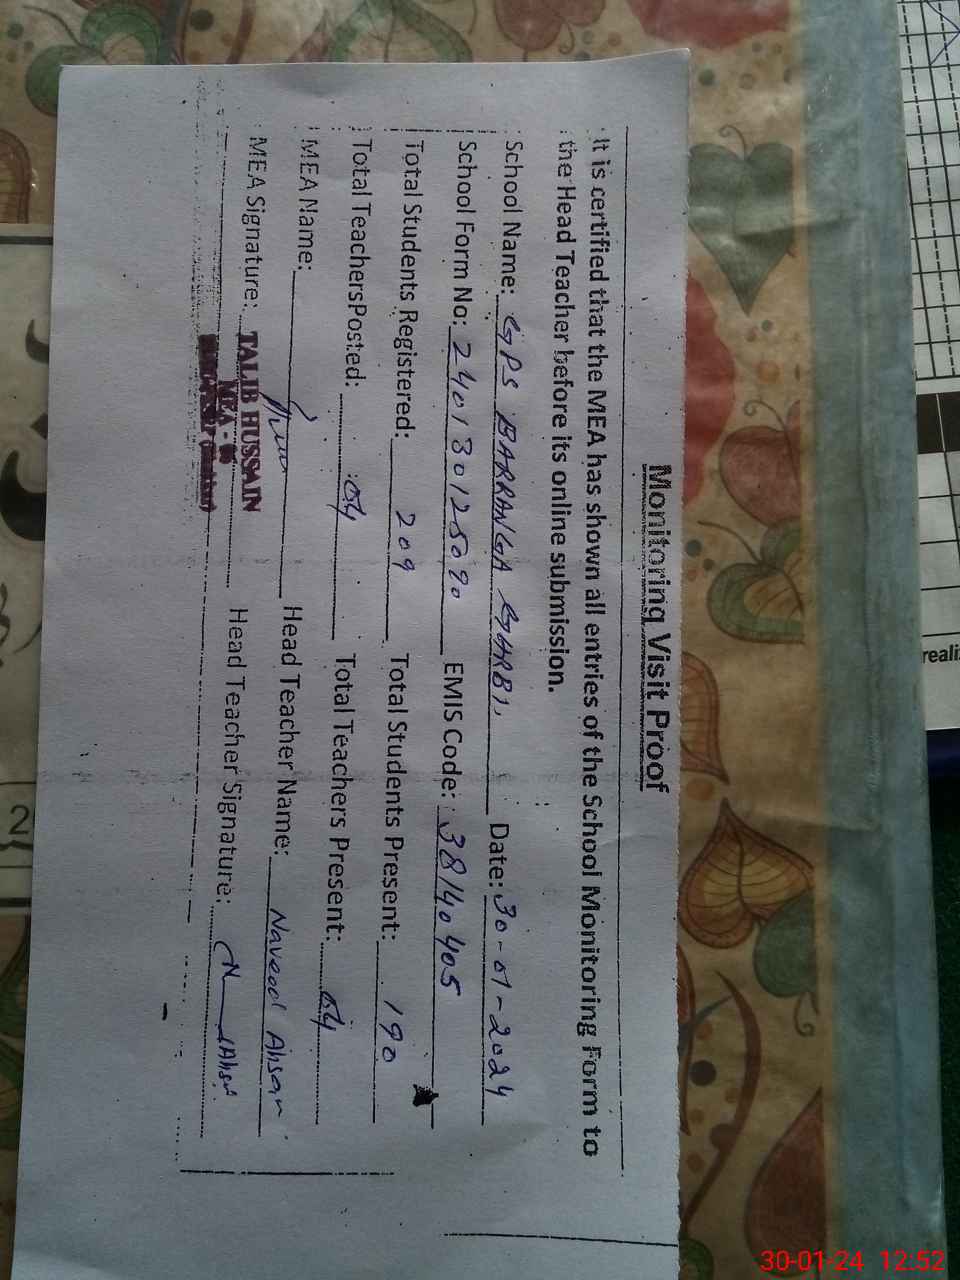 Monitoring Visit Proof
It is certified that the MEA has shown all entries of the School Monitoring Form to
the Head Teacher before its online submission.
School Name: GPS BARRANGA GHARBI Date: 30-01-2024
School Form No: 240130125090 EMIS Code: 38140405
Total Students Registered: 209 Total Students Present: 190
Total TeachersPosted: 04 Total Teachers Present: 04
MEA Name: Head Teacher Name: Naveed Ahsan
MEA Signature: TALIB HUSSAIN Head Teacher Signature: N Ahsan
MEA -
reali
2
30-01-24 12:52